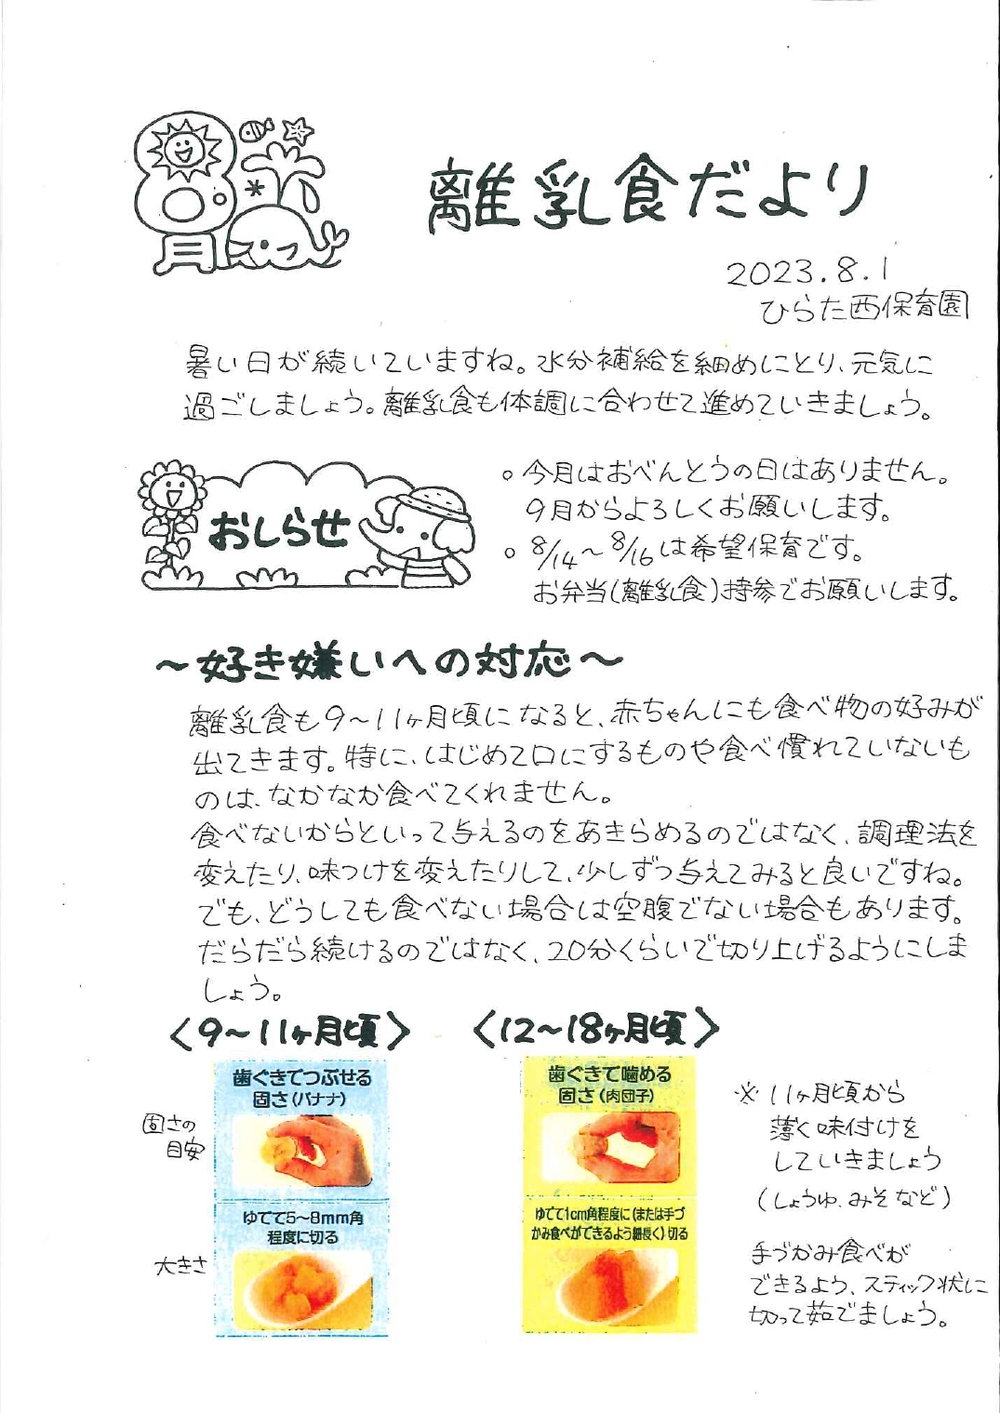 8
月
離乳食だより
2023.8.1
ひらた西保育園
暑い日が続いていますね。水分補給を細めにとり、元気に
過ごしましょう。離乳食も体調に合わせて進めていきましょう。
おしらせ
○ 今月はおべんとうの日はありません。
9月からよろしくお願いします。
○ 8/14～8/16は希望保育です。
お弁当(離乳食)持参でお願いします。
～好き嫌いへの対応～
離乳食も9～11ヶ月頃になると、赤ちゃんにも食べ物の好みが
出てきます。特に、はじめて口にするものや食べ慣れていないも
のは、なかなか食べてくれません。
食べないからといって与えるのをあきらめるのではなく、調理法を
変えたり、味つけを変えたりして、少しずつ与えてみると良いですね。
でも、どうしても食べない場合は空腹でない場合もあります。
だらだら続けるのではなく、20分くらいで切り上げるようにしま
しょう。
〈9～11ヶ月頃〉
歯ぐきでつぶせる
固さ(バナナ)
固さの
目安
ゆでて5～8mm角
程度に切る
大きさ
〈12～18ヶ月頃〉
歯ぐきで噛める
固さ(肉団子)
ゆでて1cm角程度に(または手づ
かみ食べができるよう細長く)切る
※ 11ヶ月頃から
薄く味付けを
していきましょう
(しょうゆ、みそなど)
手づかみ食べが
できるよう、スティック状に
切って茹でましょう。